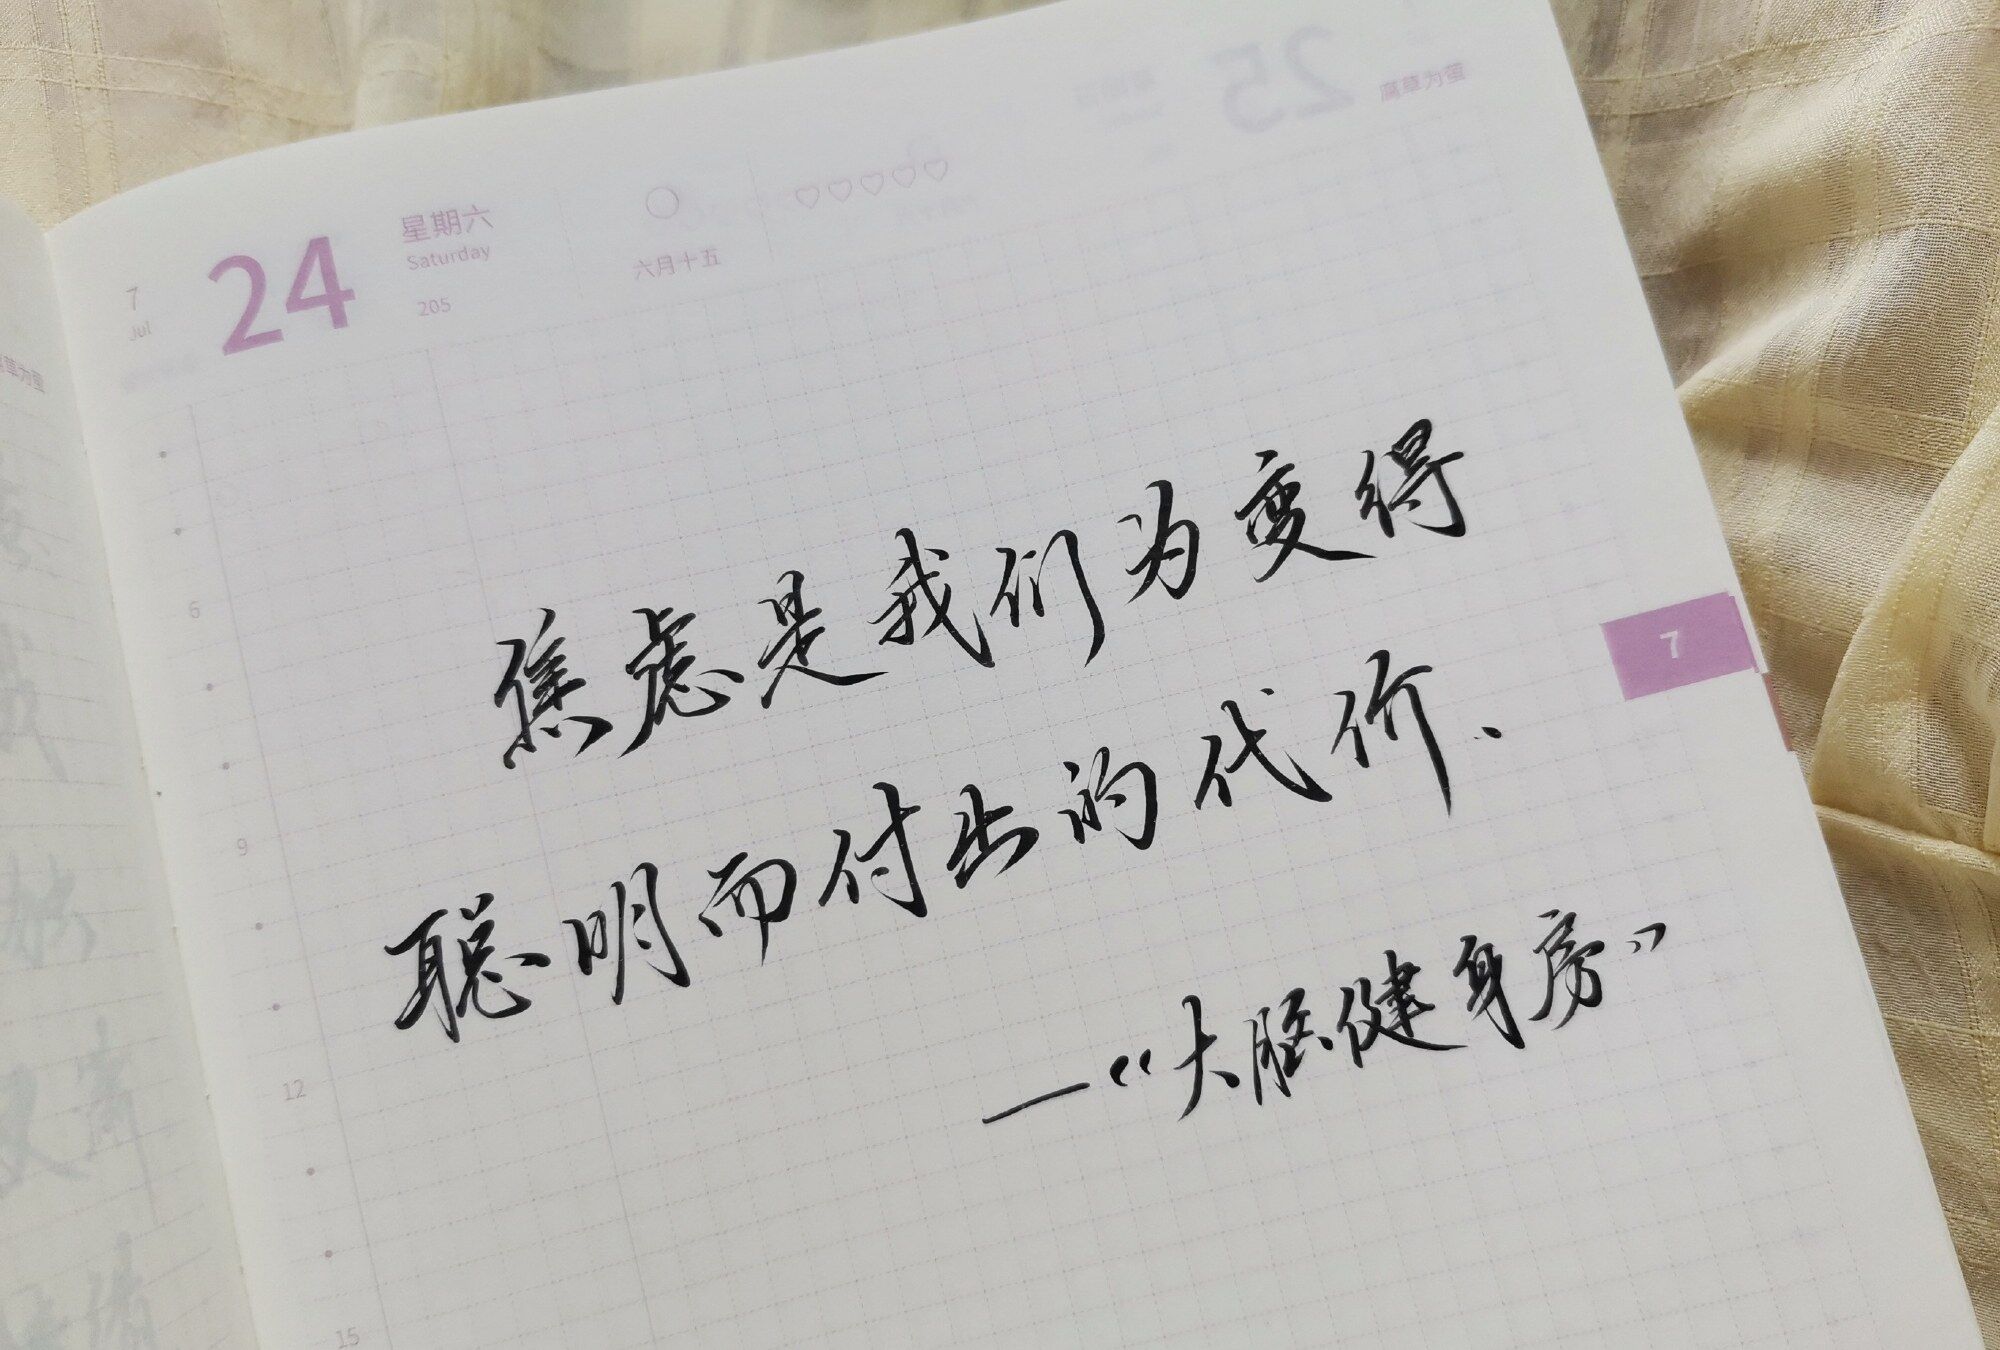 7
Jul
24
星期六
Saturday
205
六月十五
25
腐草为萤
6
焦虑是我们为变得
7
聪明而付出的代价、
9
—“大脑健身房”
12
15